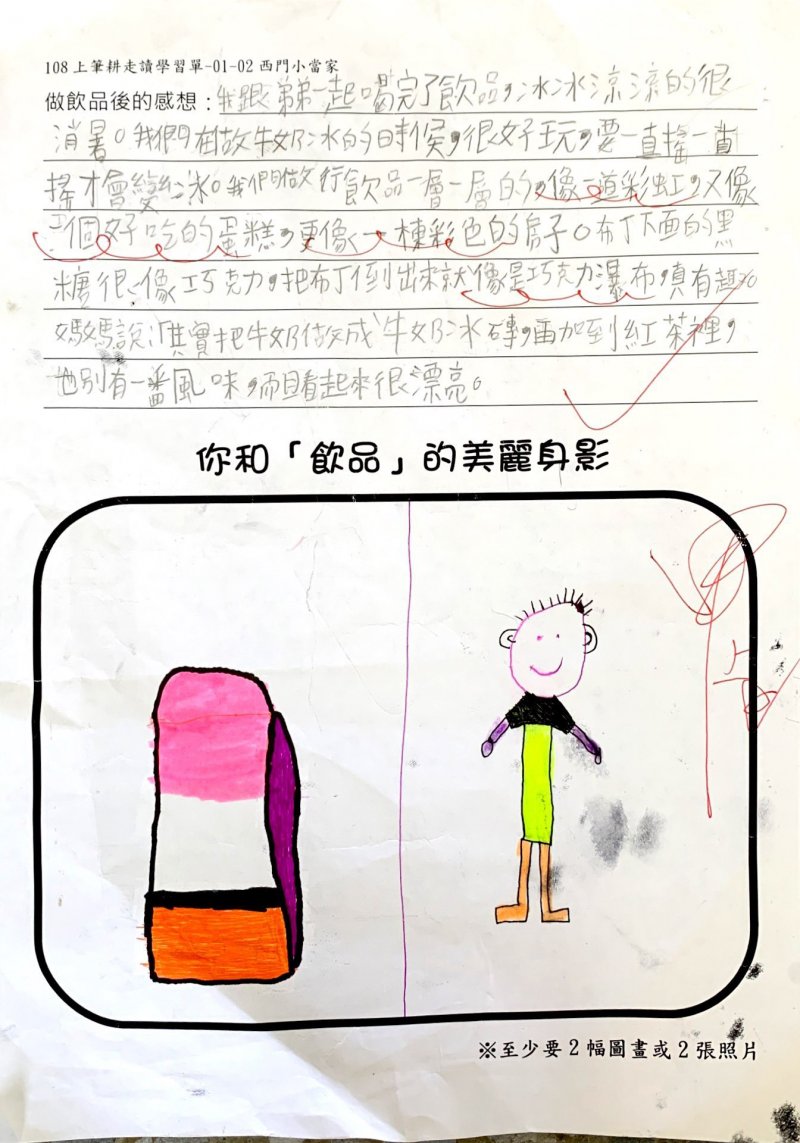 108上筆耕走讀學習單-01-02西門小當家
做飲品後的感想：我跟弟弟一起喝完了飲品，冰冰涼涼的很
消暑。我們在做牛奶冰的時候，很好玩，要一直搖一直
搖才會變冰。我們做行飲品一層一層的，像一道彩虹，又像
一個好吃的蛋糕，更像一棟彩色的房子。布丁下面的黑
糖很像巧克力，把布丁倒出來就像是巧克力瀑布，真有趣。
媽媽說：「其實把牛奶做成牛奶冰磚，再加到紅茶裡，
也別有一番風味，而且看起來很漂亮。
你和「飲品」的美麗身影
※至少要2幅圖畫或2張照片